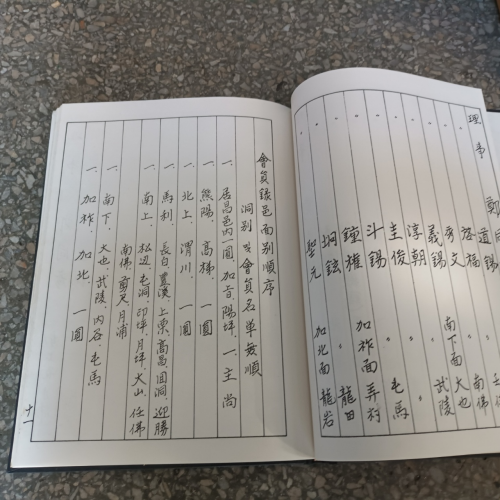 理事
鄭
道錫 〃 南佛
忍福 〃 大也
秀文 南下面 武陵
義錫 〃
淳朝 〃
圭俊 〃 屯馬
斗錫 加祚面
鍾權 〃 龍田
炯鉉 〃
聖元 加北面 龍岩
會員錄邑面別順序
洞别 및 會員名單無順
一、居昌邑內一圓 加音、陽坪、一主尚
一、熊陽、高梯 一圓
一、北上、渭川、一圓
一、馬利、長白、豊溪、上栗、高昌、回洞、迎勝
一、南上、松辺、屯洞、印坪、月坪、大山、任佛
南佛、剪尺、月浦
一、南下、大也、武陵、內谷、屯馬
一、加祚、加北、一圓
十一